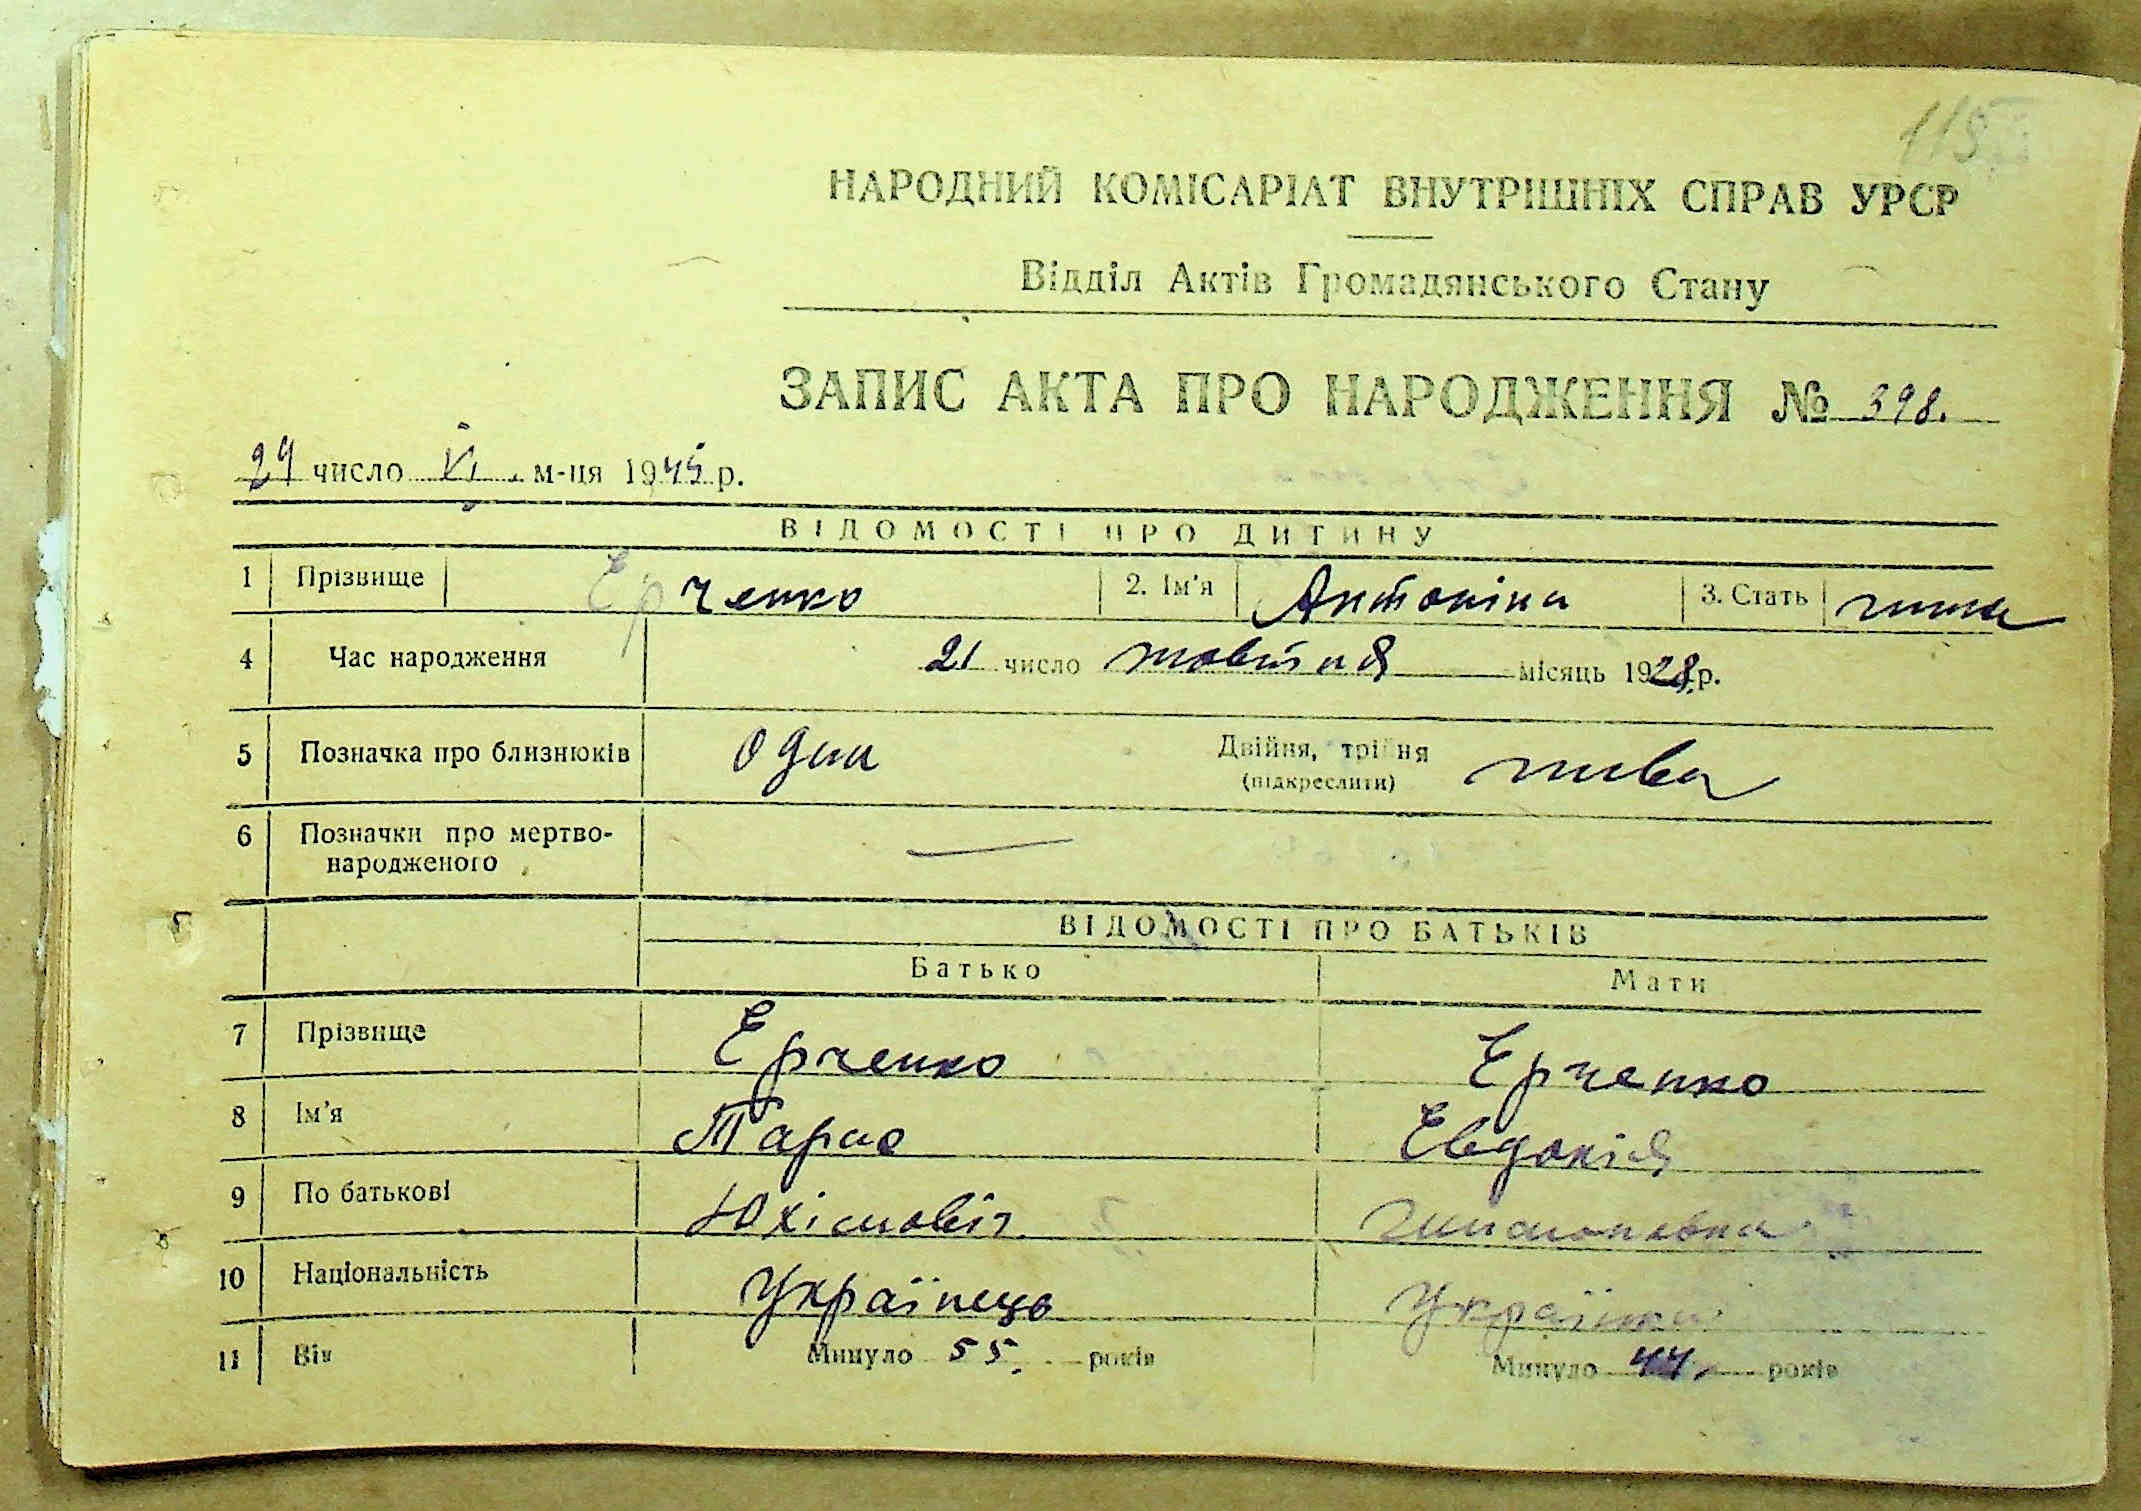 115
НАРОДНИЙ КОМІСАРІАТ ВНУТРІШНІХ СПРАВ УРСР
Відділ Актів Громадянського Стану
ЗАПИС АКТА ПРО НАРОДЖЕННЯ № 398.
29 число VI м-ця 1945 р.
ВІДОМОСТІ ПРО ДИТИНУ
1 Прізвище Ерченко 2. Ім'я Антоніна 3. Стать
4 Час народження 21 число жовтня місяць 1928 р.
5 Позначка про близнюків один Двійня, трійня жива
(підкреслити)
6 Позначки про мертво-
народженого —
ВІДОМОСТІ ПРО БАТЬКІВ
Батько Мати
7 Прізвище Ерченко Ерченко
8 Ім'я Тарас Евдокія
9 По батькові Юхімовіч
10 Національність Українець Українка
11 Вік Минуло 55. років Минуло 44. років